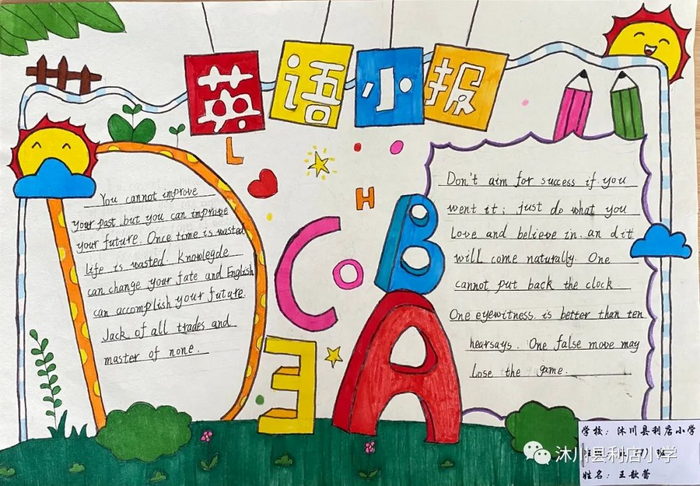 英语小报
You cannot improve
your past, but you can improve
your future. Once time is wasted
life is wasted. Knowlegde
can change your fate and English
can accomplish your future.
Jack of all trades and
master of none.
L
H
C
O
B
E
A
Don't aim for success if you
went it; just do what you
Love and believe in. an d it
will come naturally. One
cannot put back the clock
One eyewitness is better than ten
hearsays. One false move may
Lose the game.
学校：沐川县利店小学
姓名：王歆蕾
沐川县利店小学